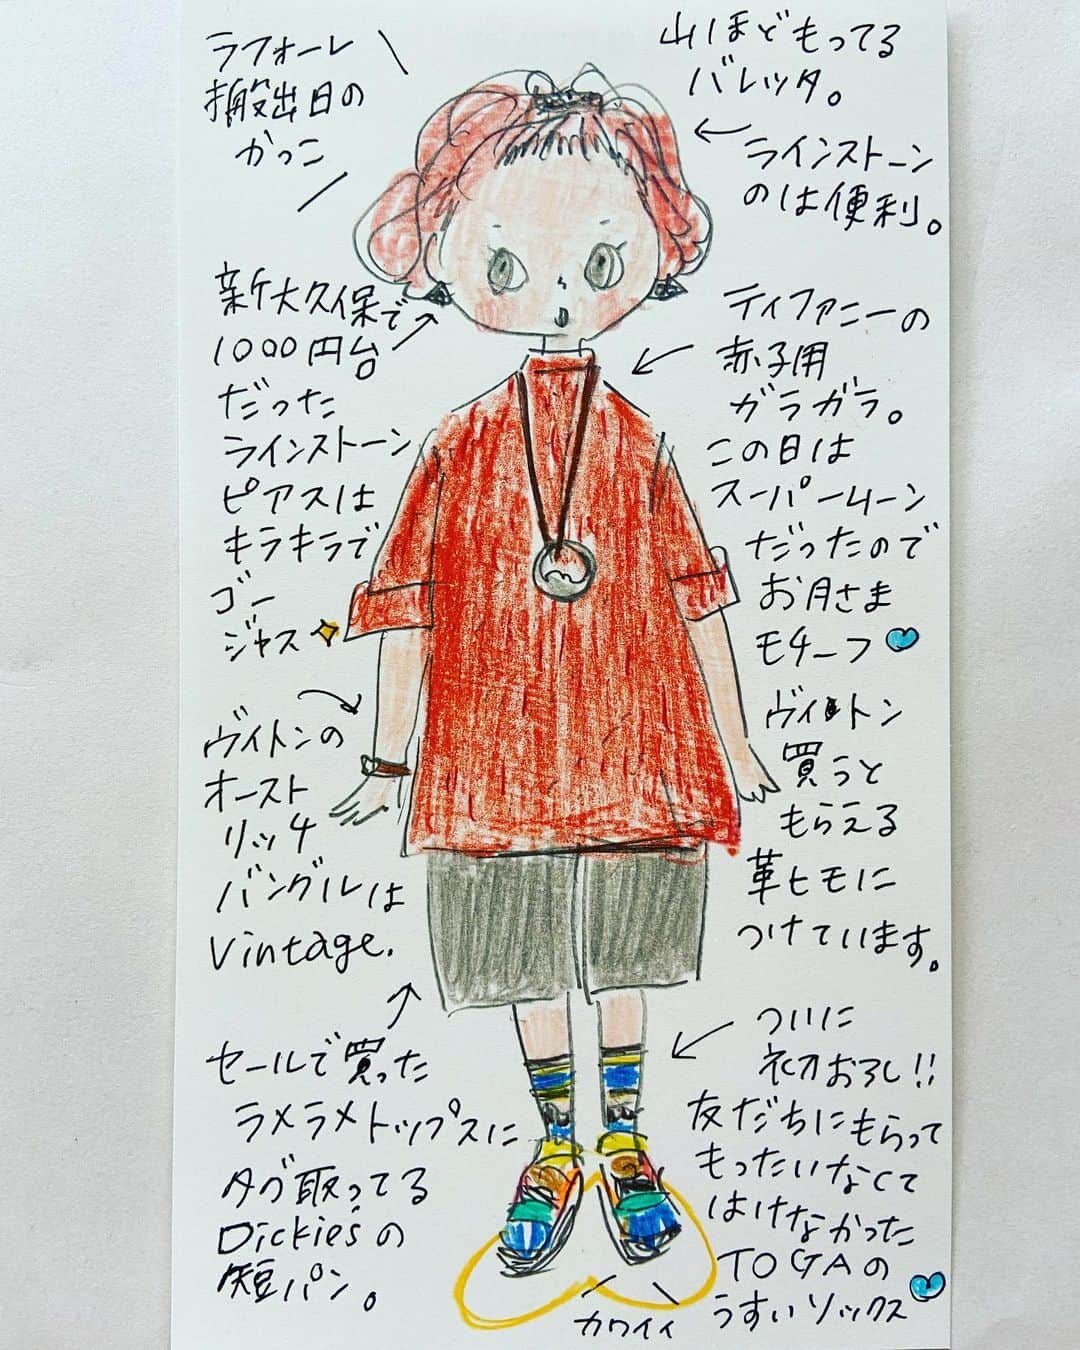 ラフォーレ
搬出日の
かっこ
山ほどもってる
バレッタ。
ラインストーン
のは便利。
新大久保で
1000円台
だった
ラインストーン
ピアスは
キラキラで
ゴー
ジャス
ティファニーの
赤子用
ガラガラ。
この日は
スーパームーン
だったので
お月さま
モチーフ
ヴィトンの
オースト
リッチ
バングルは
Vintage.
ヴィトン
買うと
もらえる
革ヒモに
つけています。
セールで買った
ラメラメトップスに
タグ取ってる
Dickie'sの
短パン。
ついに
ネオおろし!!
友だちにもらって
もったいなくて
はけなかった
TOGAの
うすいソックス
カワイイ